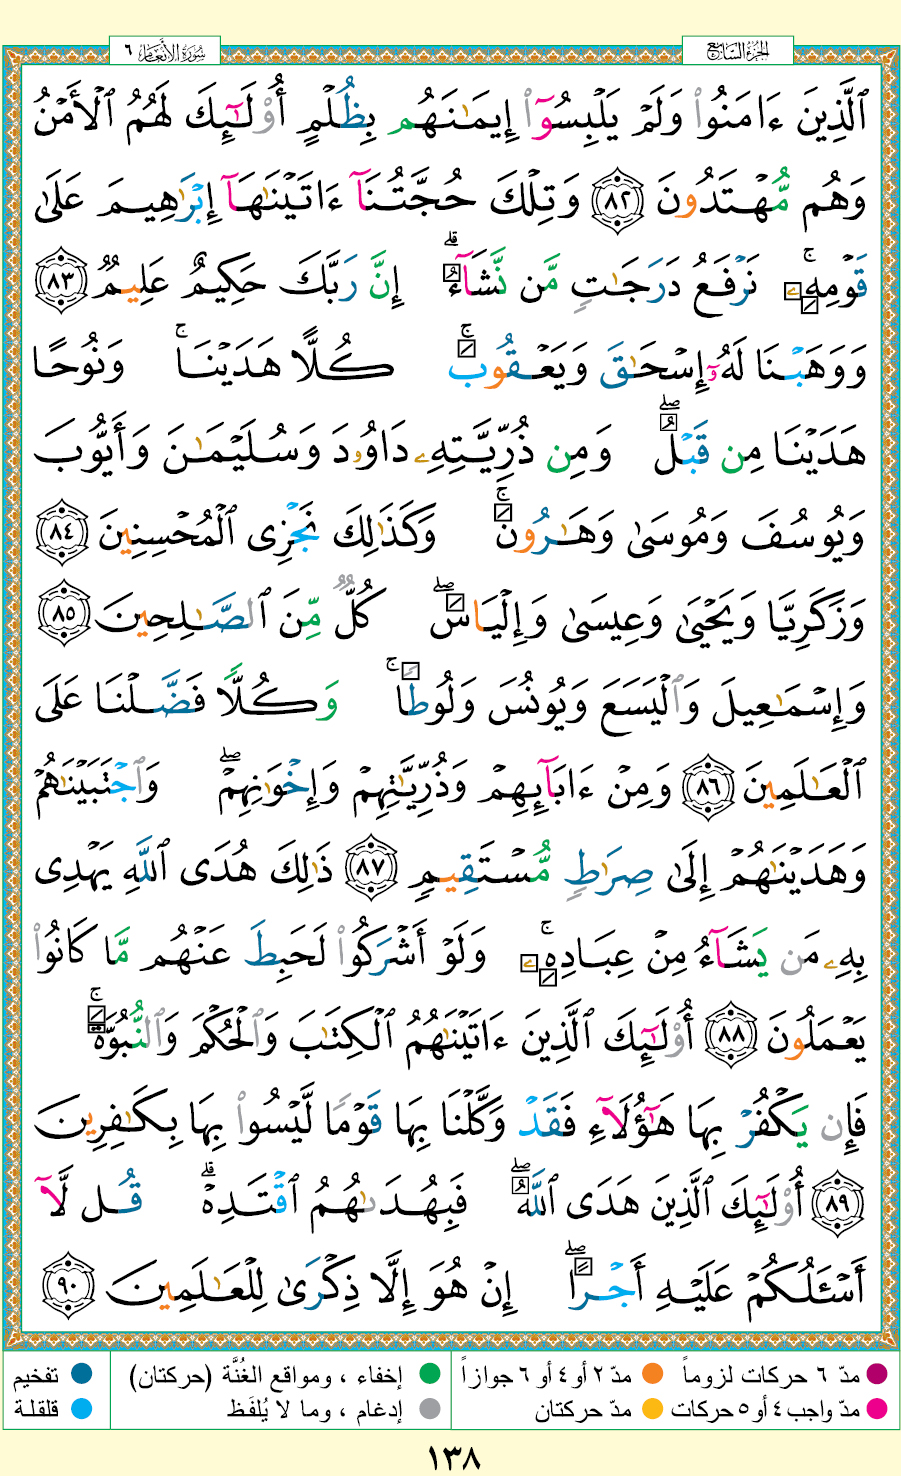 سُورَةُ الأَنْعَام ٦
الجُزْءُ السَّابِع
ٱلَّذِينَ ءَامَنُوا۟ وَلَمْ يَلْبِسُوٓا۟ إِيمَـٰنَهُم بِظُلْمٍ أُو۟لَـٰٓئِكَ لَهُمُ ٱلْأَمْنُ
وَهُم مُّهْتَدُونَ ٨٢ وَتِلْكَ حُجَّتُنَآ ءَاتَيْنَـٰهَآ إِبْرَٰهِيمَ عَلَىٰ
قَوْمِهِۦ ۚ نَرْفَعُ دَرَجَـٰتٍ مَّن نَّشَآءُ ۗ إِنَّ رَبَّكَ حَكِيمٌ عَلِيمٌ ٨٣
وَوَهَبْنَا لَهُۥٓ إِسْحَـٰقَ وَيَعْقُوبَ ۚ كُلًّا هَدَيْنَا ۚ وَنُوحًا
هَدَيْنَا مِن قَبْلُ ۖ وَمِن ذُرِّيَّتِهِۦ دَاوُۥدَ وَسُلَيْمَـٰنَ وَأَيُّوبَ
وَيُوسُفَ وَمُوسَىٰ وَهَـٰرُونَ ۚ وَكَذَٰلِكَ نَجْزِى ٱلْمُحْسِنِينَ ٨٤
وَزَكَرِيَّا وَيَحْيَىٰ وَعِيسَىٰ وَإِلْيَاسَ ۖ كُلٌّ مِّنَ ٱلصَّـٰلِحِينَ ٨٥
وَإِسْمَـٰعِيلَ وَٱلْيَسَعَ وَيُونُسَ وَلُوطًا ۚ وَكُلًّا فَضَّلْنَا عَلَى
ٱلْعَـٰلَمِينَ ٨٦ وَمِنْ ءَابَآئِهِمْ وَذُرِّيَّـٰتِهِمْ وَإِخْوَٰنِهِمْ ۖ وَٱجْتَبَيْنَـٰهُمْ
وَهَدَيْنَـٰهُمْ إِلَىٰ صِرَٰطٍ مُّسْتَقِيمٍ ٨٧ ذَٰلِكَ هُدَى ٱللَّهِ يَهْدِى
بِهِۦ مَن يَشَآءُ مِنْ عِبَادِهِۦ ۚ وَلَوْ أَشْرَكُوا۟ لَحَبِطَ عَنْهُم مَّا كَانُوا۟
يَعْمَلُونَ ٨٨ أُو۟لَـٰٓئِكَ ٱلَّذِينَ ءَاتَيْنَـٰهُمُ ٱلْكِتَـٰبَ وَٱلْحُكْمَ وَٱلنُّبُوَّةَ ۚ
فَإِن يَكْفُرْ بِهَا هَـٰٓؤُلَآءِ فَقَدْ وَكَّلْنَا بِهَا قَوْمًا لَّيْسُوا۟ بِهَا بِكَـٰفِرِينَ
٨٩ أُو۟لَـٰٓئِكَ ٱلَّذِينَ هَدَى ٱللَّهُ ۖ فَبِهُدَىٰهُمُ ٱقْتَدِهْ ۗ قُل لَّآ
أَسْـَٔلُكُمْ عَلَيْهِ أَجْرًا ۖ إِنْ هُوَ إِلَّا ذِكْرَىٰ لِلْعَـٰلَمِينَ ٩٠
مدّ ٦ حركات لزوماً مدّ ٢ أو ٤ أو ٦ جوازاً إخفاء ، ومواقع الغُنَّة (حركتان) تفخيم
مدّ واجب ٤ أو ٥ حركات مدّ حركتان إدغام ، وما لا يُلفَظ قلقلة
١٣٨